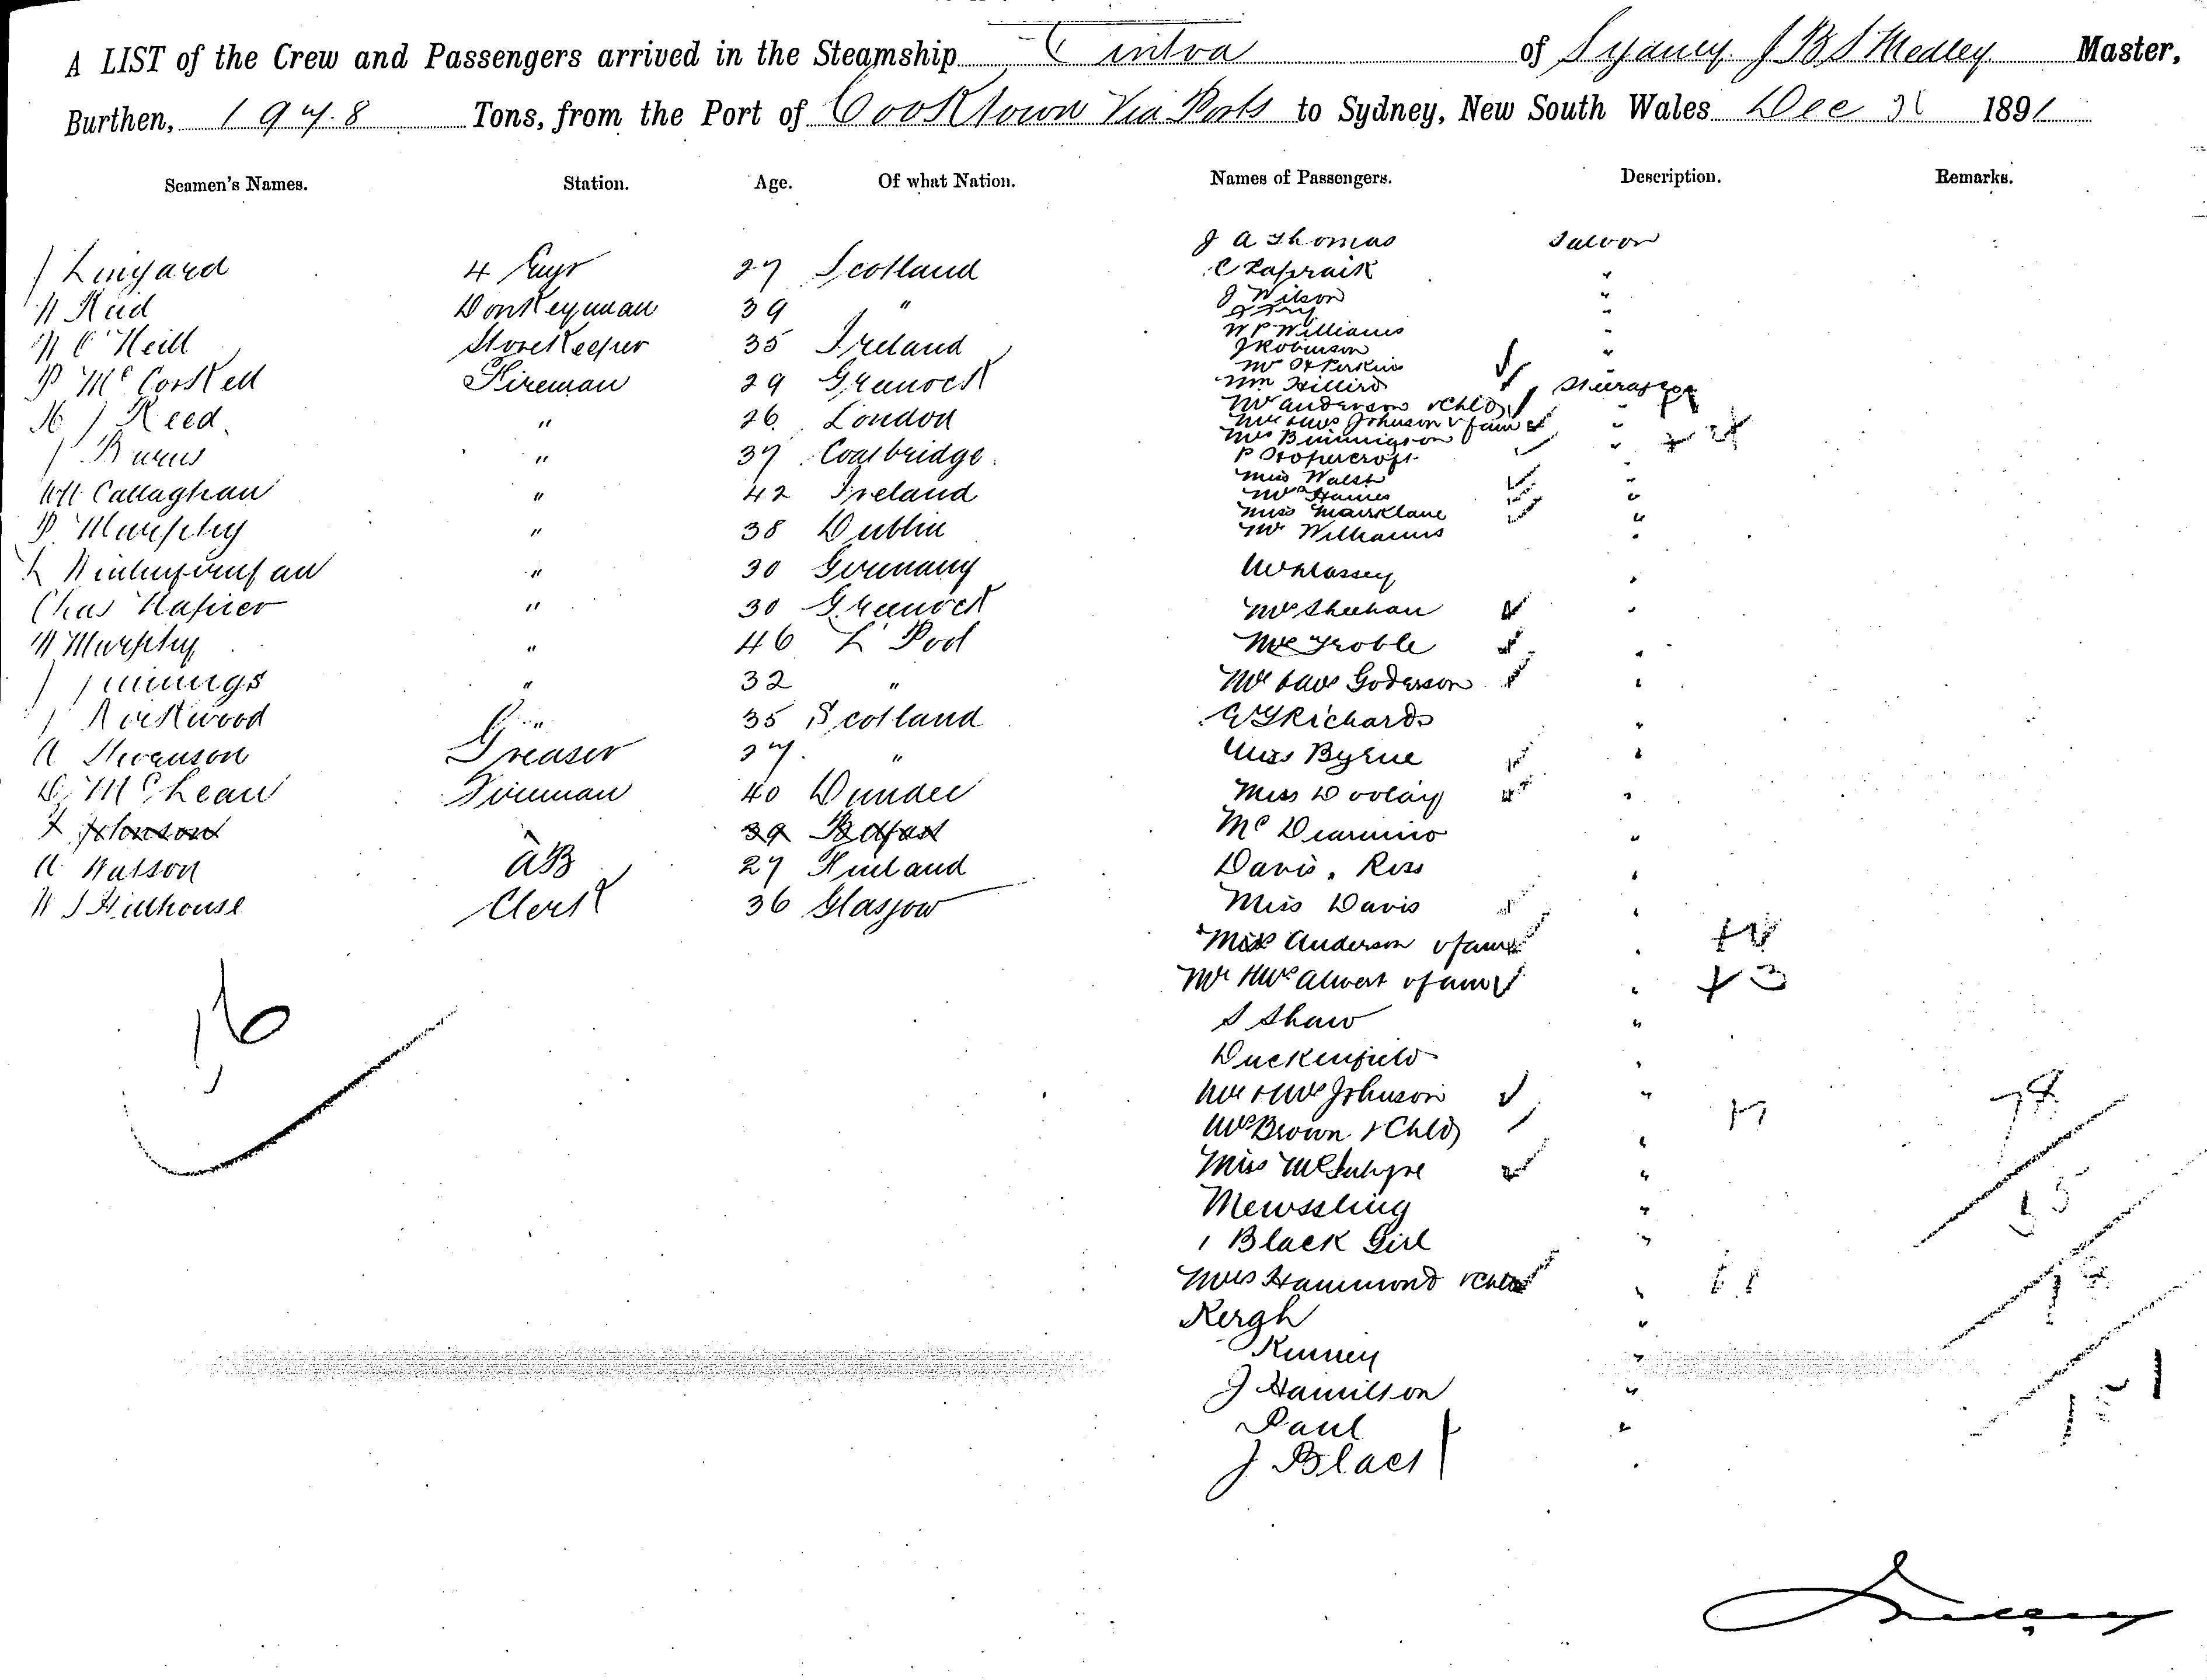 A LIST of the Crew and Passengers arrived in the Steamship Cintra of Sydney J B S Medley Master,
Burthen, 1974.8 Tons, from the Port of Cooktown Via Ports to Sydney, New South Wales Dec 31 1891
Seamen's Names. Station. Age. Of what Nation. Names of Passengers. Description. Remarks.
J A Thomas Saloon
J Lingard 4 Engr 27 Scotland
C Lapraik "
W Reid Donkeyman 39 "
J Wilson "
J Fry "
W P Williams "
N O'Neill Storekeeper 35 Ireland
J Robinson "
Mr H Perkins
P McCorkell Fireman 29 Greenock
Wm Hillird Steerage
Mrs Anderson & Chld
H J Reed " 26 London
Mr & Mrs Johnson & fam "
Mrs Binnigson "
J Burns " 37 Coatbridge
P
Miss Walsh "
W H Callaghan " 42 Ireland
Mrs Hames "
Miss "
P Murphy " 38 Dublin
Mr Williams "
L " 30 Germany
W Massey "
Chas Napier " 30 Greenock
Mrs Sheehan "
M Murphy " 46 L'Pool
Mrs Troble "
J Jennings " 32 "
Mr & Mrs Goderson "
J Kirkwood " 35 Scotland
E G Richards "
A Stevenson Greaser 27 "
Miss Byrne "
D McLean Fireman 40 Dundee
Miss Dooley "
J Johnson 39 Belfast
Mc "
A Watson AB 27 Finland
Davis, Ross "
W J Hillhouse Clerk 36 Glasgow
Miss Davis "
Mrs Anderson & fam " +4
Mr & Mrs Alwort & fam " +3
16
S Shaw "
Duckenfield "
Mr & Mrs Johnson "
Mrs Brown & Chld " +1
78
Miss McIntyre "
55
Mewssling "
1 Black Girl "
Mrs Hammond & Chld " +1
18
Kergh "
Kinney "
J Hamilton "
151
Paul "
J Black "